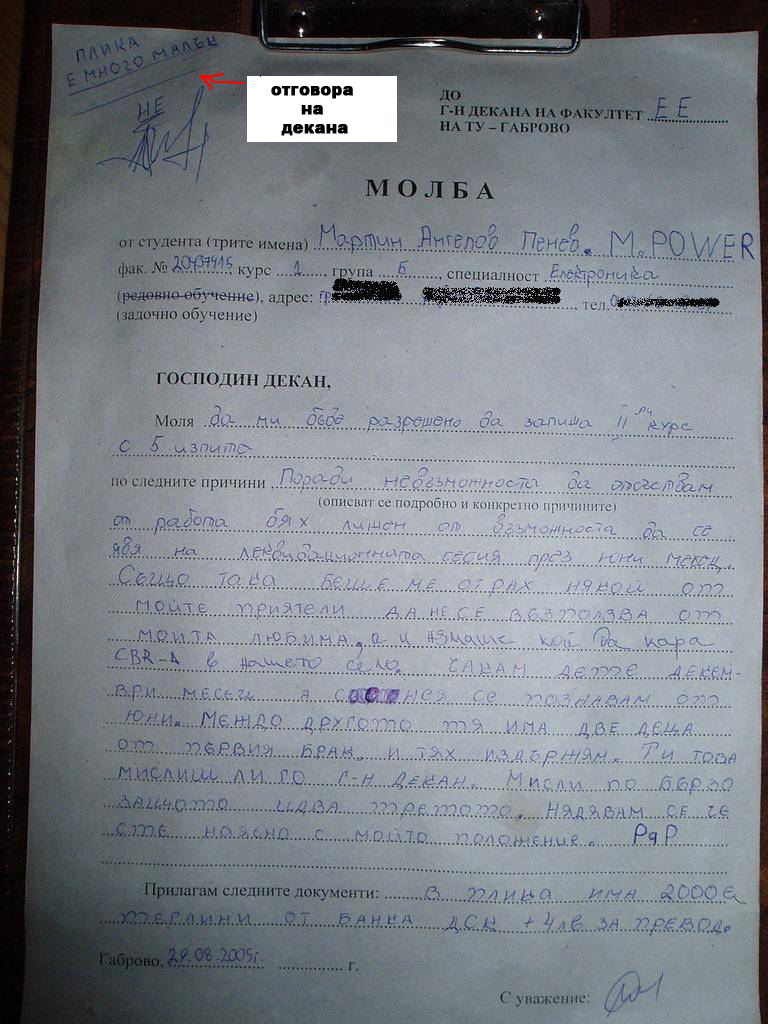 ПЛИКА
Е МНОГО МАЛЪК
НЕ
отговора
на
декана
ДО
Г-Н ДЕКАНА НА ФАКУЛТЕТ ЕЕ
НА ТУ – ГАБРОВО
МОЛБА
от студента (трите имена) Мартин Ангелов Пенев. M.POWER
фак. № 20437415 курс 1, група Б, специалност Електроника
(редовно обучение), адрес: гр. тел. 0
(задочно обучение)
ГОСПОДИН ДЕКАН,
Моля да ми бъде разрешено да запиша II ри курс
с 5 изпита
по следните причини Поради невъзможноста да отсъствам
(описват се подробно и конкретно причините)
от работа бях лишен от възможноста да се
явя на леквидационната сесия през юни месец.
Също така беше ме страх някой от
мойте приятели да не се възползва от
моита любима, а и нямаше кой да кара
CBR-А в нашето село. Чакам дете декем-
ври месец а с нея се познавам от
юни. Междо другото тя има две деца
от първия брак, и тях издържям. Ти това
мислиш ли го г-н Декан. Мисли по бързо
защото идва третото. Нядявам се че
сте наясно с мойто положение. РдР
Прилагам следните документи: В плика има 2000 €
терлини от банка ДСК + 4лв за превод.
Габрово, 29.08.2005г. г.
С уважение: